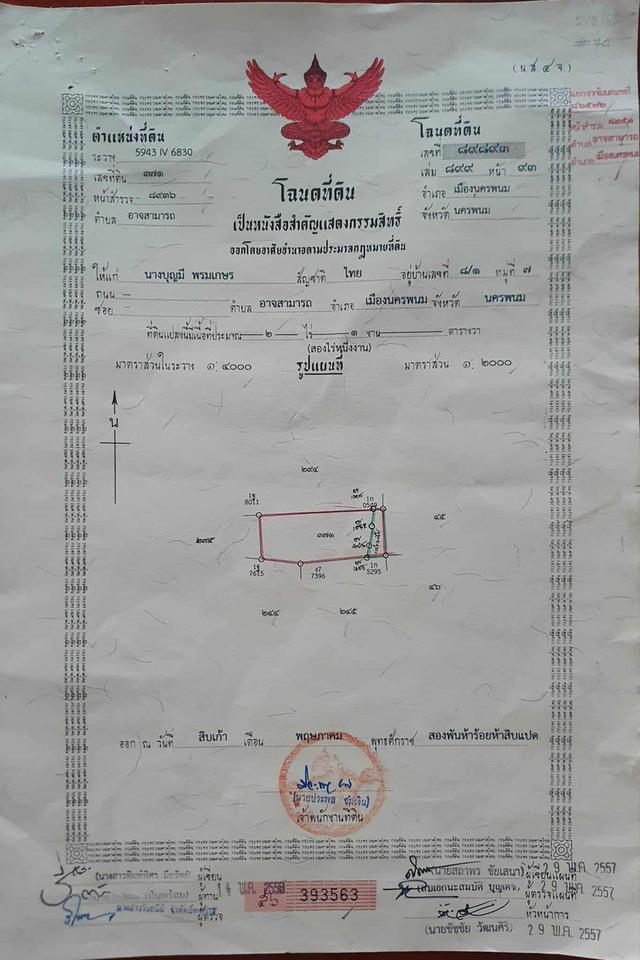 (น.ส. ๔ จ.)
ตำแหน่งที่ดิน
ระวาง 5943 IV 6830
เลขที่ดิน ๓๗๑
หน้าสำรวจ ๘๙๓๖
ตำบล อาจสามารถ
โฉนดที่ดิน
เลขที่ ๘๙๘๙๓
เล่ม ๘๙๙ หน้า ๙๓
อำเภอ เมืองนครพนม
จังหวัด นครพนม
โฉนดที่ดิน
เป็นหนังสือสำคัญแสดงกรรมสิทธิ์
ออกโดยอาศัยอำนาจตามประมวลกฎหมายที่ดิน
ให้แก่ นางบุญมี พรมเกษร สัญชาติ ไทย อยู่บ้านเลขที่ ๘/๑ หมู่ที่ ๗
ถนน –
ซอย ตำบล อาจสามารถ อำเภอ เมืองนครพนม จังหวัด นครพนม
ที่ดินแปลงนี้มีเนื้อที่ประมาณ ๒ ไร่ ๑ งาน ตารางวา
(สองไร่หนึ่งงาน)
มาตราส่วนในระวาง ๑:๔๐๐๐ รูปแผนที่ มาตราส่วน ๑:๒๐๐๐
น
๒๙๔
1ฐ
8011
1ก
๒๙๕
๓๗๑
๔๕
1ฐ
7615
ง7
7396
1ก
5295
๔๖
๒๔๔
๒๔๕
ออก ณ วันที่ สิบเก้า เดือน พฤษภาคม พุทธศักราช สองพันห้าร้อยห้าสิบแปด
เจ้าพนักงานที่ดิน
ผู้เขียน
ผู้ทาน
ผู้ตรวจ
14 พ.ค. 2558
393563
(นายสถาพร ชัยเสนา) 29 พ.ค. 2557 ผู้เขียนแผนที่
29 พ.ค. 2557 ผู้ตรวจแผนที่
หัวหน้าการ
(นายชัชชัย วัฒนศิริ) 29 พ.ค. 2557